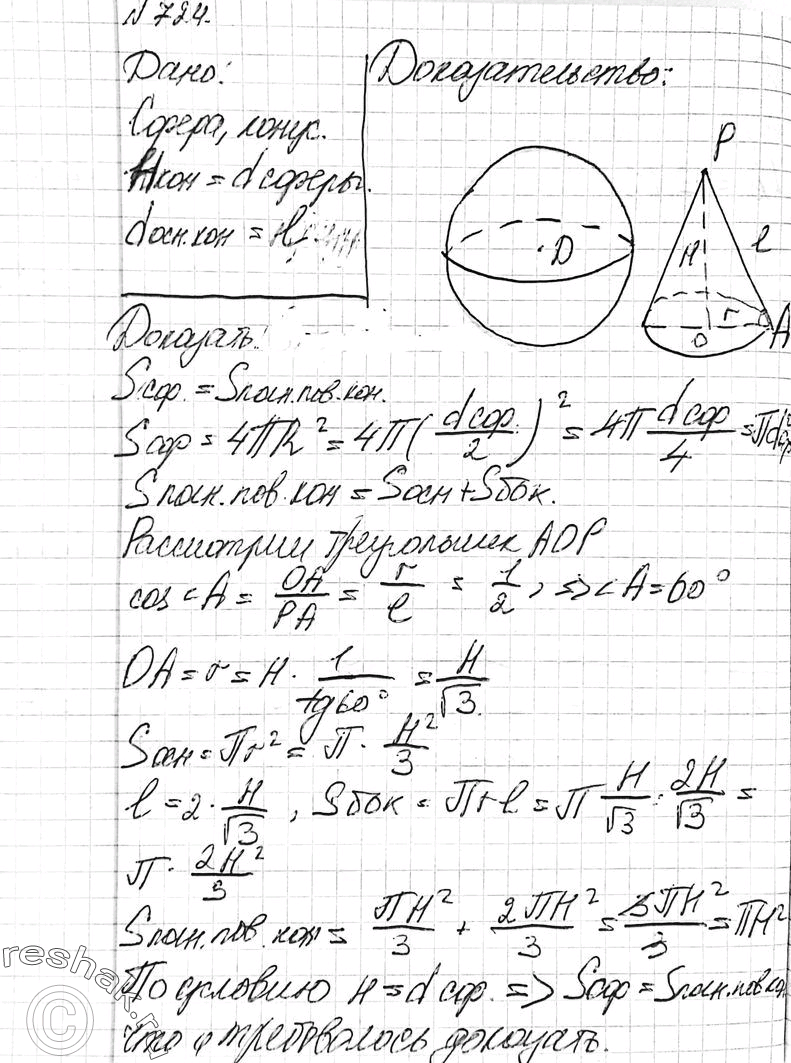 N 724.
Дано:
Доказательство:
Сфера, конус.
Hкон = dсферы.
dосн.кон = l
P
H
l
D
r
O
A
Доказать:
Sсф. = Sполн.пов.кон.
Sсф = 4ПR² = 4П(dсф/2)² = 4П dсф/4 = Пd²сф
Sполн.пов.кон = Sосн + Sбок.
Рассмотрим треугольник AOP
cos<A = OA/PA = r/l = 1/2, => <A = 60°
OA = r = H · 1/tg60° = H/√3.
Sосн = Пr² = П · H²/3
l = 2 · H/√3, Sбок = Пrl = П H/√3 · 2H/√3 =
П · 2H²/3
Sполн.пов.кон = ПH²/3 + 2ПH²/3 = 3ПH²/3 = ПH²
По условию H = dсф. => Sсф = Sполн.пов.кон
Что и требовалось доказать.
reshak.ru
©